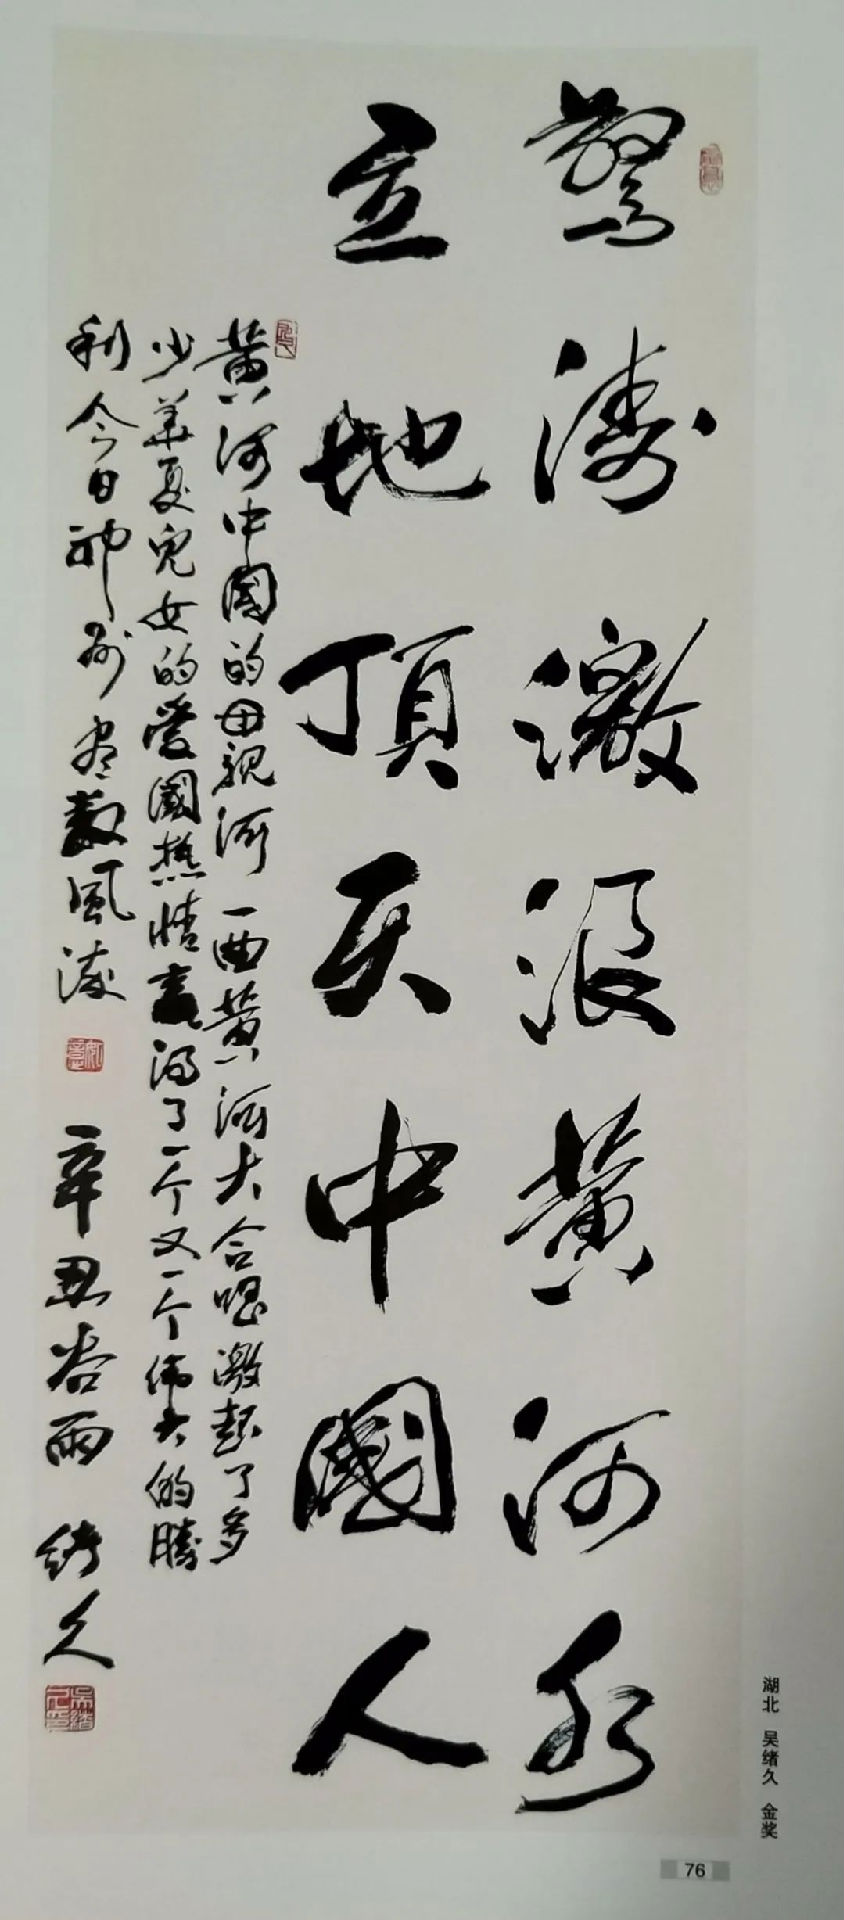 驚濤激浪黄河水
立地頂天中國人
黄河中國的母親河一曲黄河大合唱激起了多
少華夏兒女的愛國熱情贏得了一个又一个偉大的勝
利今日神州尽数風流
辛丑谷雨 绪久
湖北 吴绪久 金奖
76